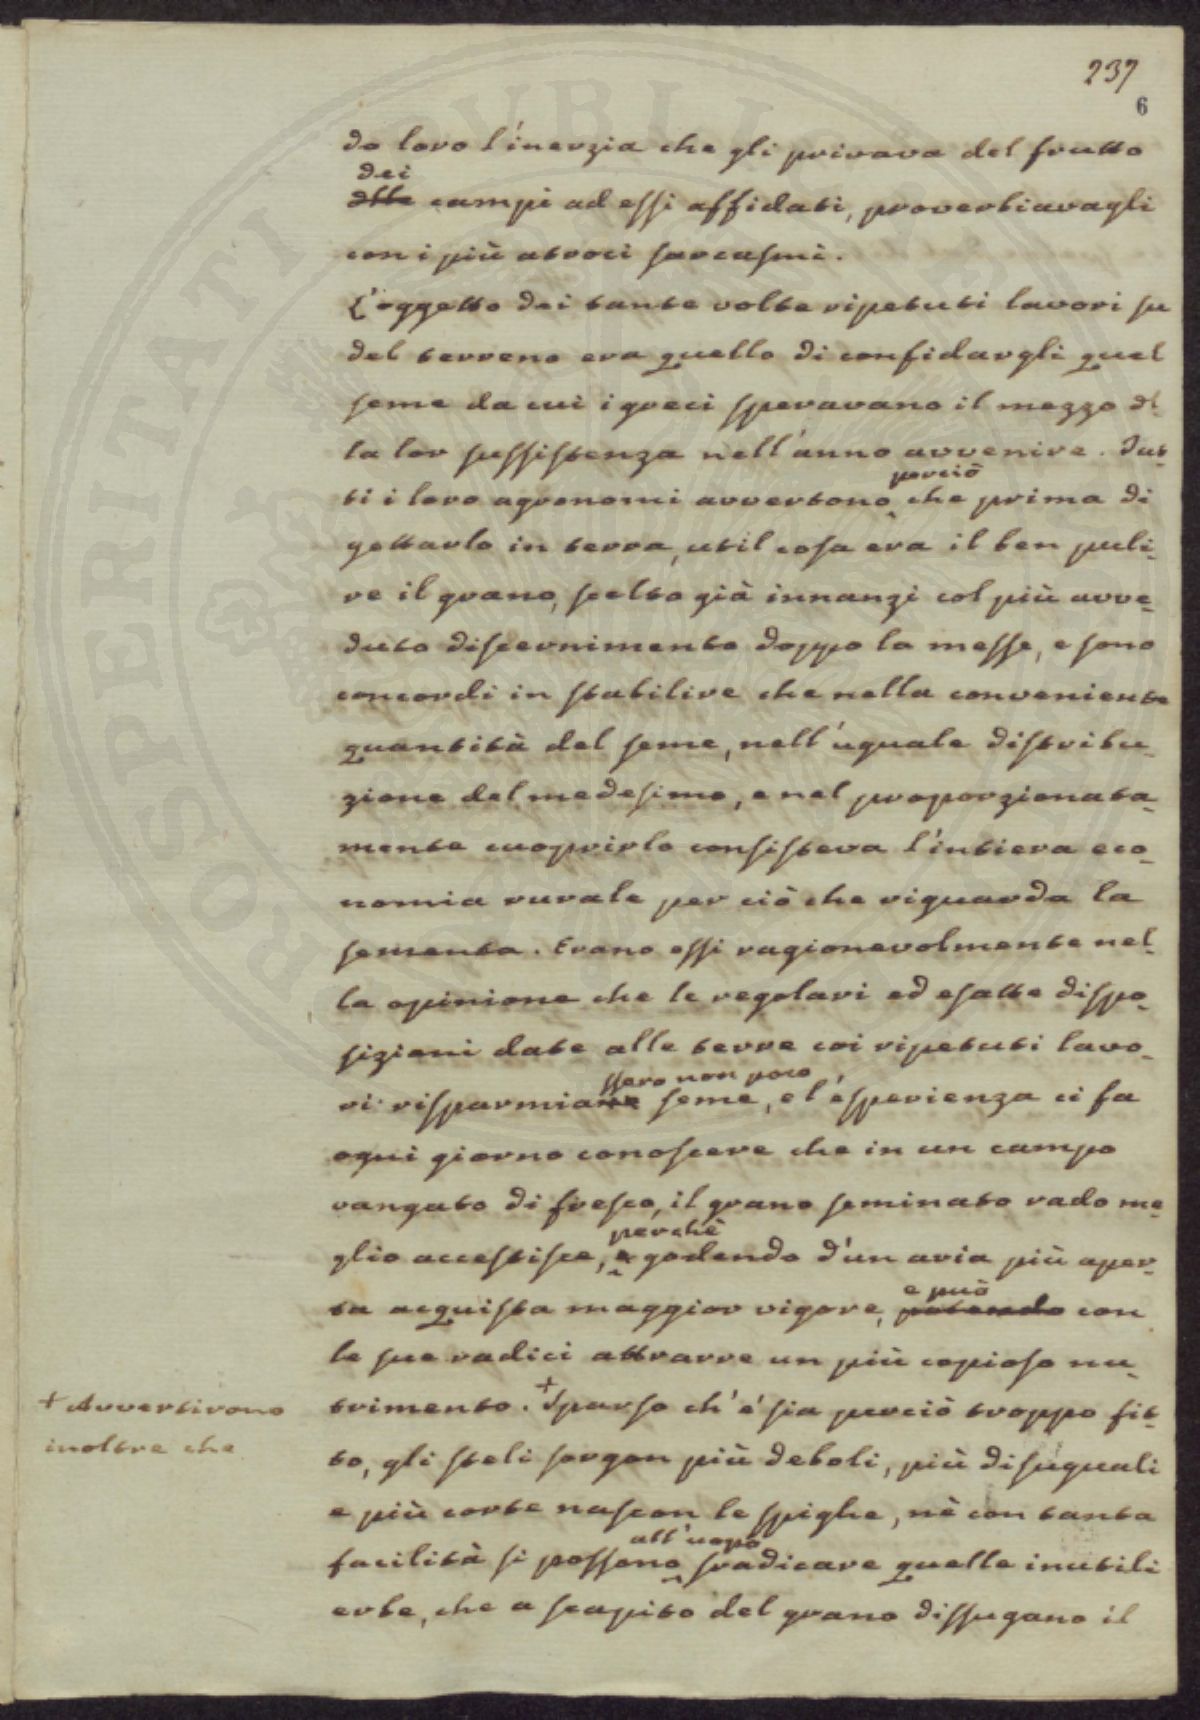 237
6
do loro l'inerzia che gli privava del frutto
dei
delle campi ad essi affidati, proverbiavagli
con i più atroci sarcasmi.
L'oggetto dei tante volte ripetuti lavori su
del terreno era quello di confidargli quel
seme da cui i greci speravano il mezzo del
la lor sussistenza nell'anno avvenire. Tut-
perciò
ti i loro agronomi avvertono che prima di
gettarlo in terra, util cosa era il ben puli-
re il grano, scelto già innanzi col più avve-
duto discernimento doppo la messe, e sono
concordi in stabilire che nella conveniente
quantità del seme, nell'uguale distribu-
zione del medesimo, e nel proporzionata-
mente cuoprirlo consisteva l'intiera eco-
nomia rurale per ciò che riguarda la
sementa. Erano essi ragionevolmente nel-
la opinione che le regolari ed esatte dispo-
sizioni date alle terre coi ripetuti lavo-
ssero non poco
ri risparmiano seme, e l'esperienza ci fa
ogni giorno conoscere che in un campo
vangato di fresco, il grano seminato rado me-
perchè
glio accestisce, e godendo d'un aria più aper-
e può
ta acquista maggior vigore, potendo con
le sue radici attrarre un più copioso nu-
trimento. + Sparso ch'e' sia perciò troppo fit-
+ Avvertirono
inoltre che
to, gli steli sorgon più deboli, più disuguali
e più corte nascon le spighe, nè con tanta
all'uopo
facilità si possono sradicare quelle inutili
erbe, che a scapito del grano dissugano il
PROSPERITATI PUBLICAE